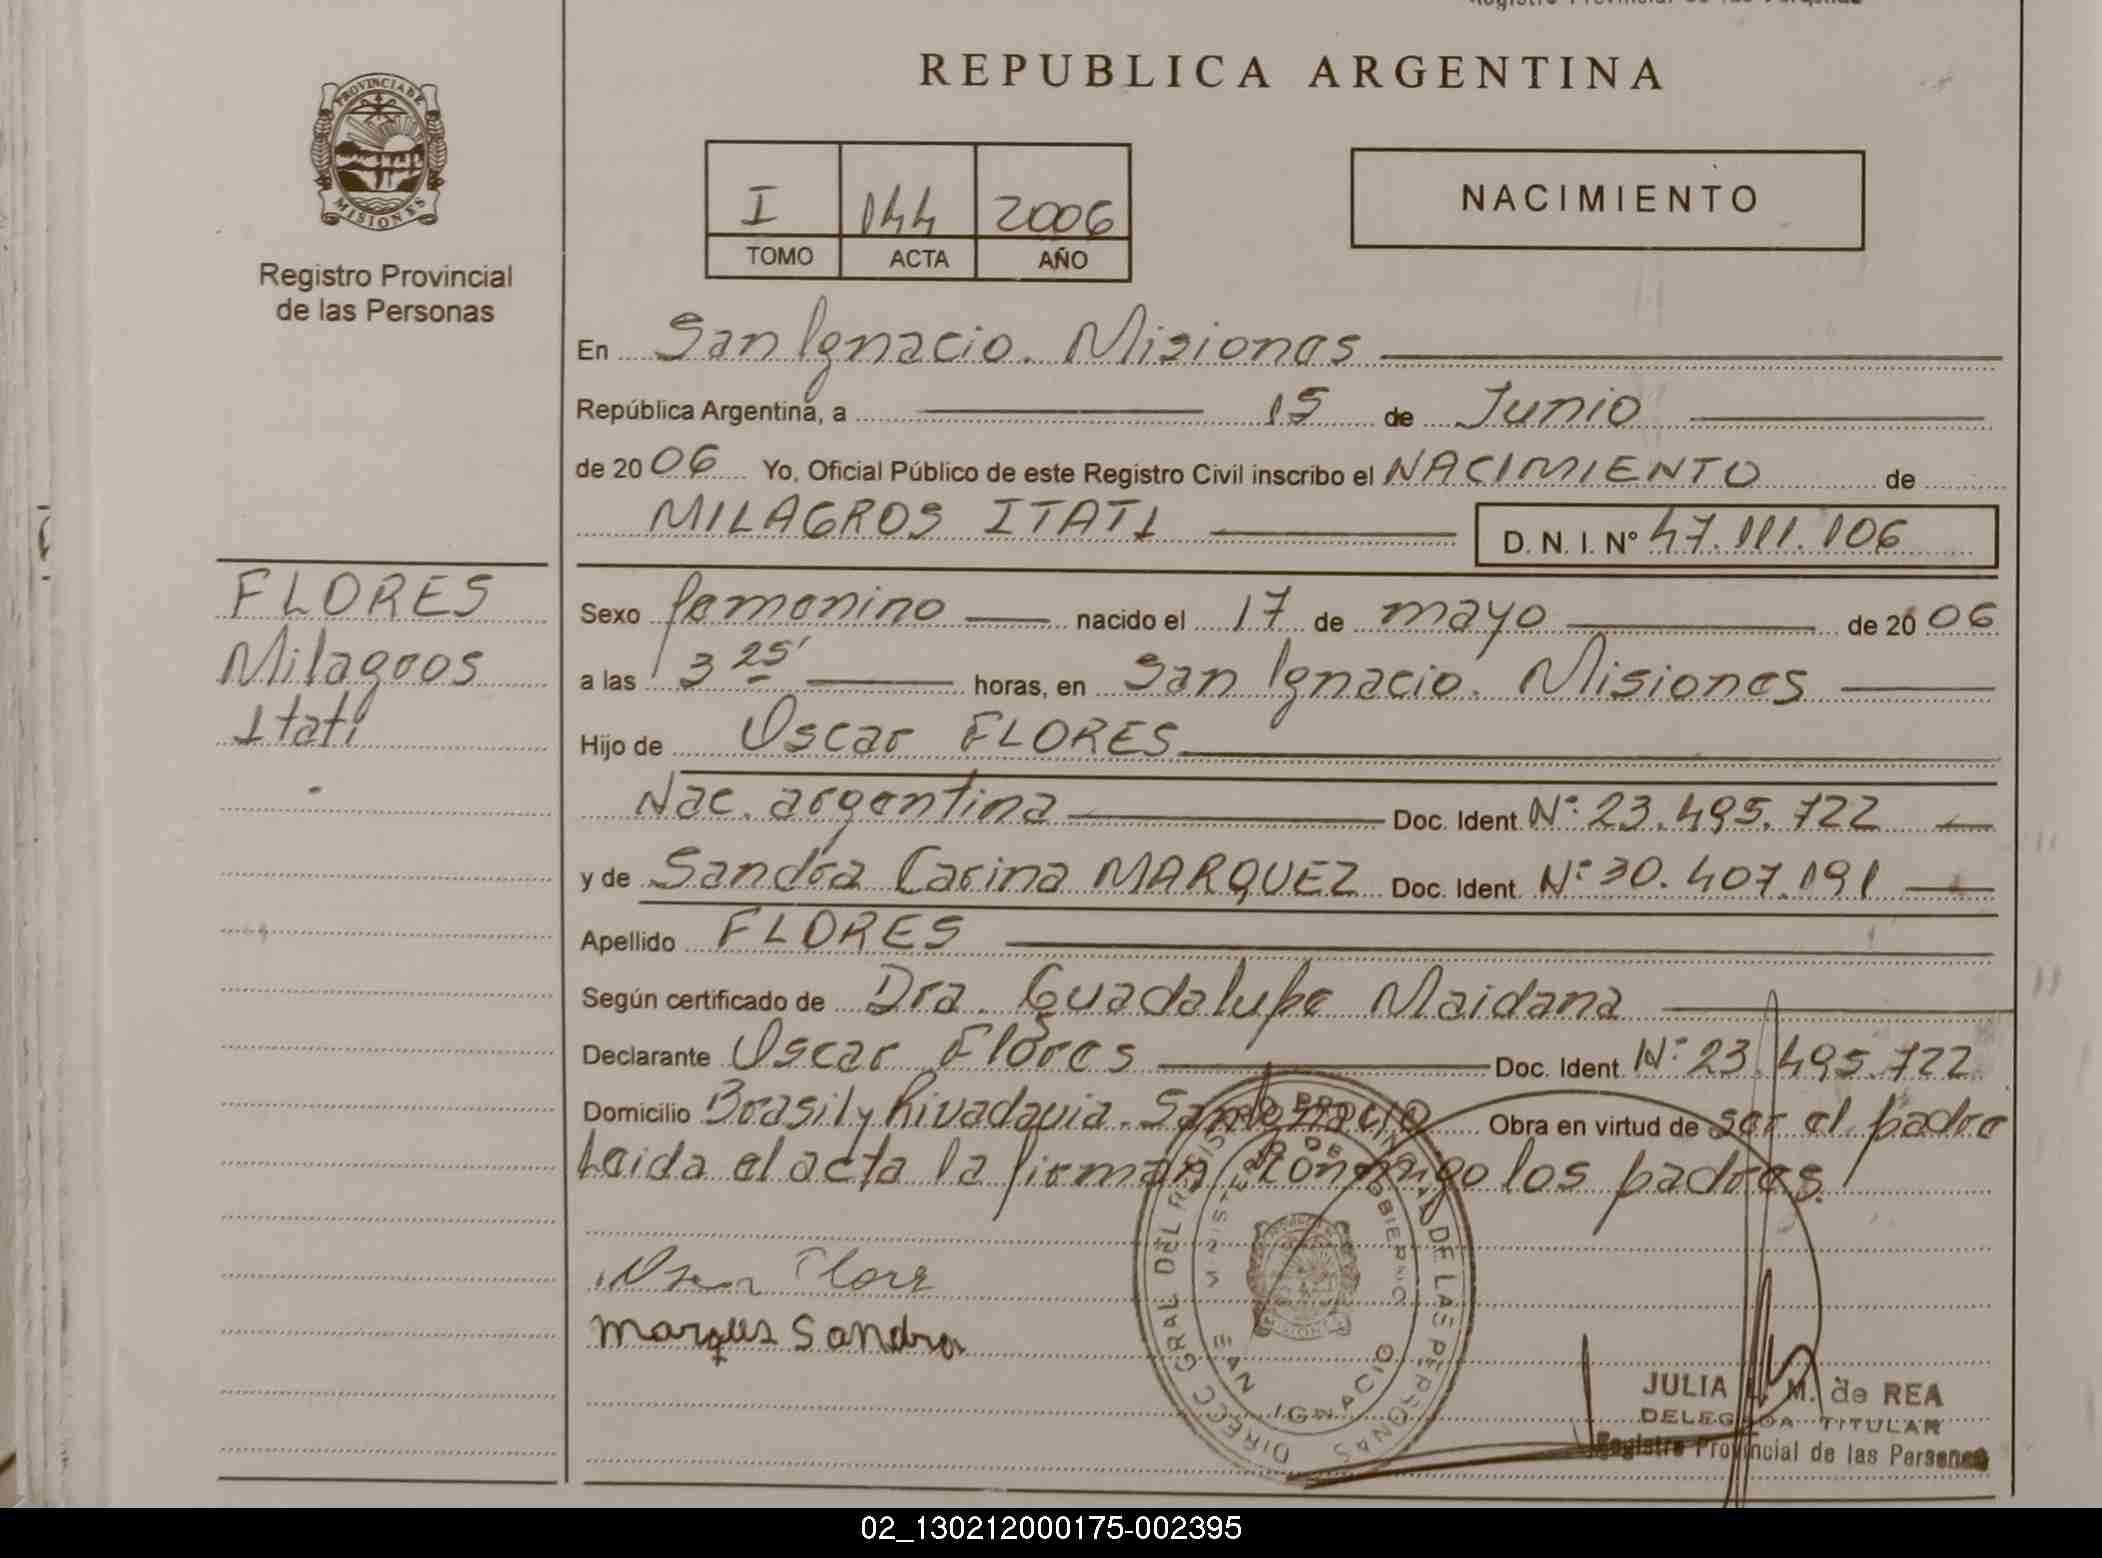 REPUBLICA ARGENTINA
PROVINCIA DE
MISIONES
Registro Provincial
de las Personas
I 144 2006
TOMO ACTA AÑO
NACIMIENTO
En San Ignacio. Misiones
República Argentina, a 15 de Junio
de 2006 Yo, Oficial Público de este Registro Civil inscribo el NACIMIENTO de
MILAGROS ITATI D. N. I. Nº 47.111.106
FLORES
Milagros
Itati
Sexo femenino nacido el 17 de mayo de 2006
a las 3 25' horas, en San Ignacio. Misiones
Hijo de Oscar FLORES
Nac. argentina Doc. Ident. Nº 23.495.722
y de Sandra Carina MARQUEZ Doc. Ident. Nº 30.407.191
Apellido FLORES
Según certificado de Dra. Guadalupe Maidana
Declarante Oscar Flores Doc. Ident. Nº 23.495.722
Domicilio Brasil y Rivadavia. San Ignacio Obra en virtud de ser el padre
Leida el acta la firman conmigo los padres.
DIRECC GRAL DEL REGISTRO PROVINCIAL DE LAS PERSONAS
MINISTERIO DE GOBIERNO
SAN IGNACIO
MISIONES
Oscar Flore
marques Sandra
JULIA M. de REA
DELEGADA TITULAR
Registro Provincial de las Personas
02_130212000175-002395